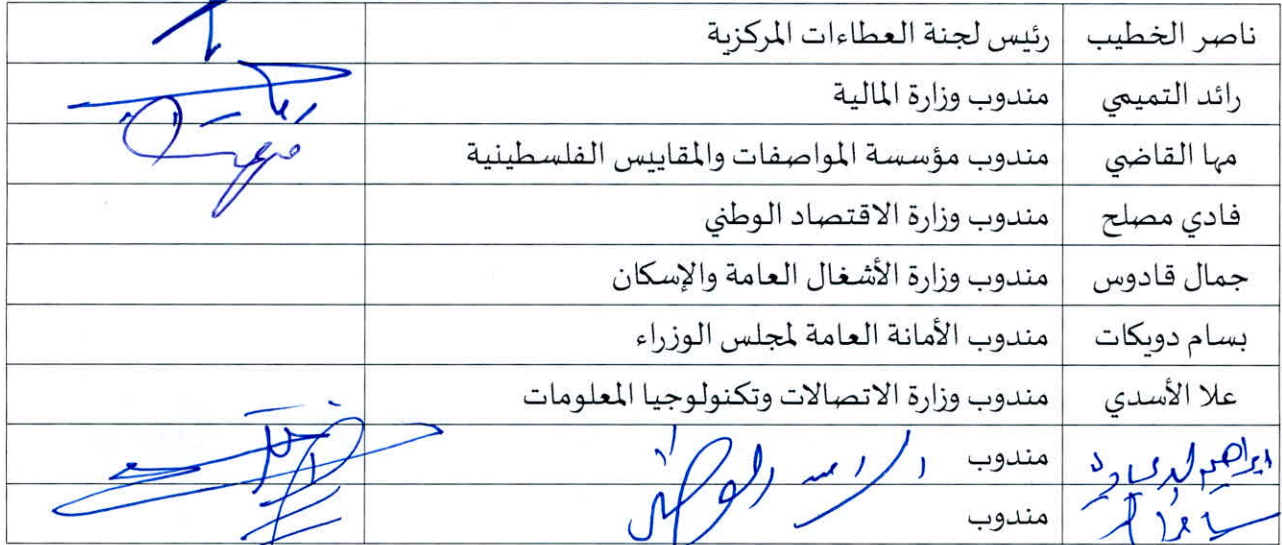 ناصر الخطيب رئيس لجنة العطاءات المركزية
رائد التميمي مندوب وزارة المالية
مها القاضي مندوب مؤسسة المواصفات والمقاييس الفلسطينية
فادي مصلح مندوب وزارة الاقتصاد الوطني
جمال قادوس مندوب وزارة الأشغال العامة والإسكان
بسام دويكات مندوب الأمانة العامة لمجلس الوزراء
علا الأسدي مندوب وزارة الاتصالات وتكنولوجيا المعلومات
ابراهيم مندوب
مندوب